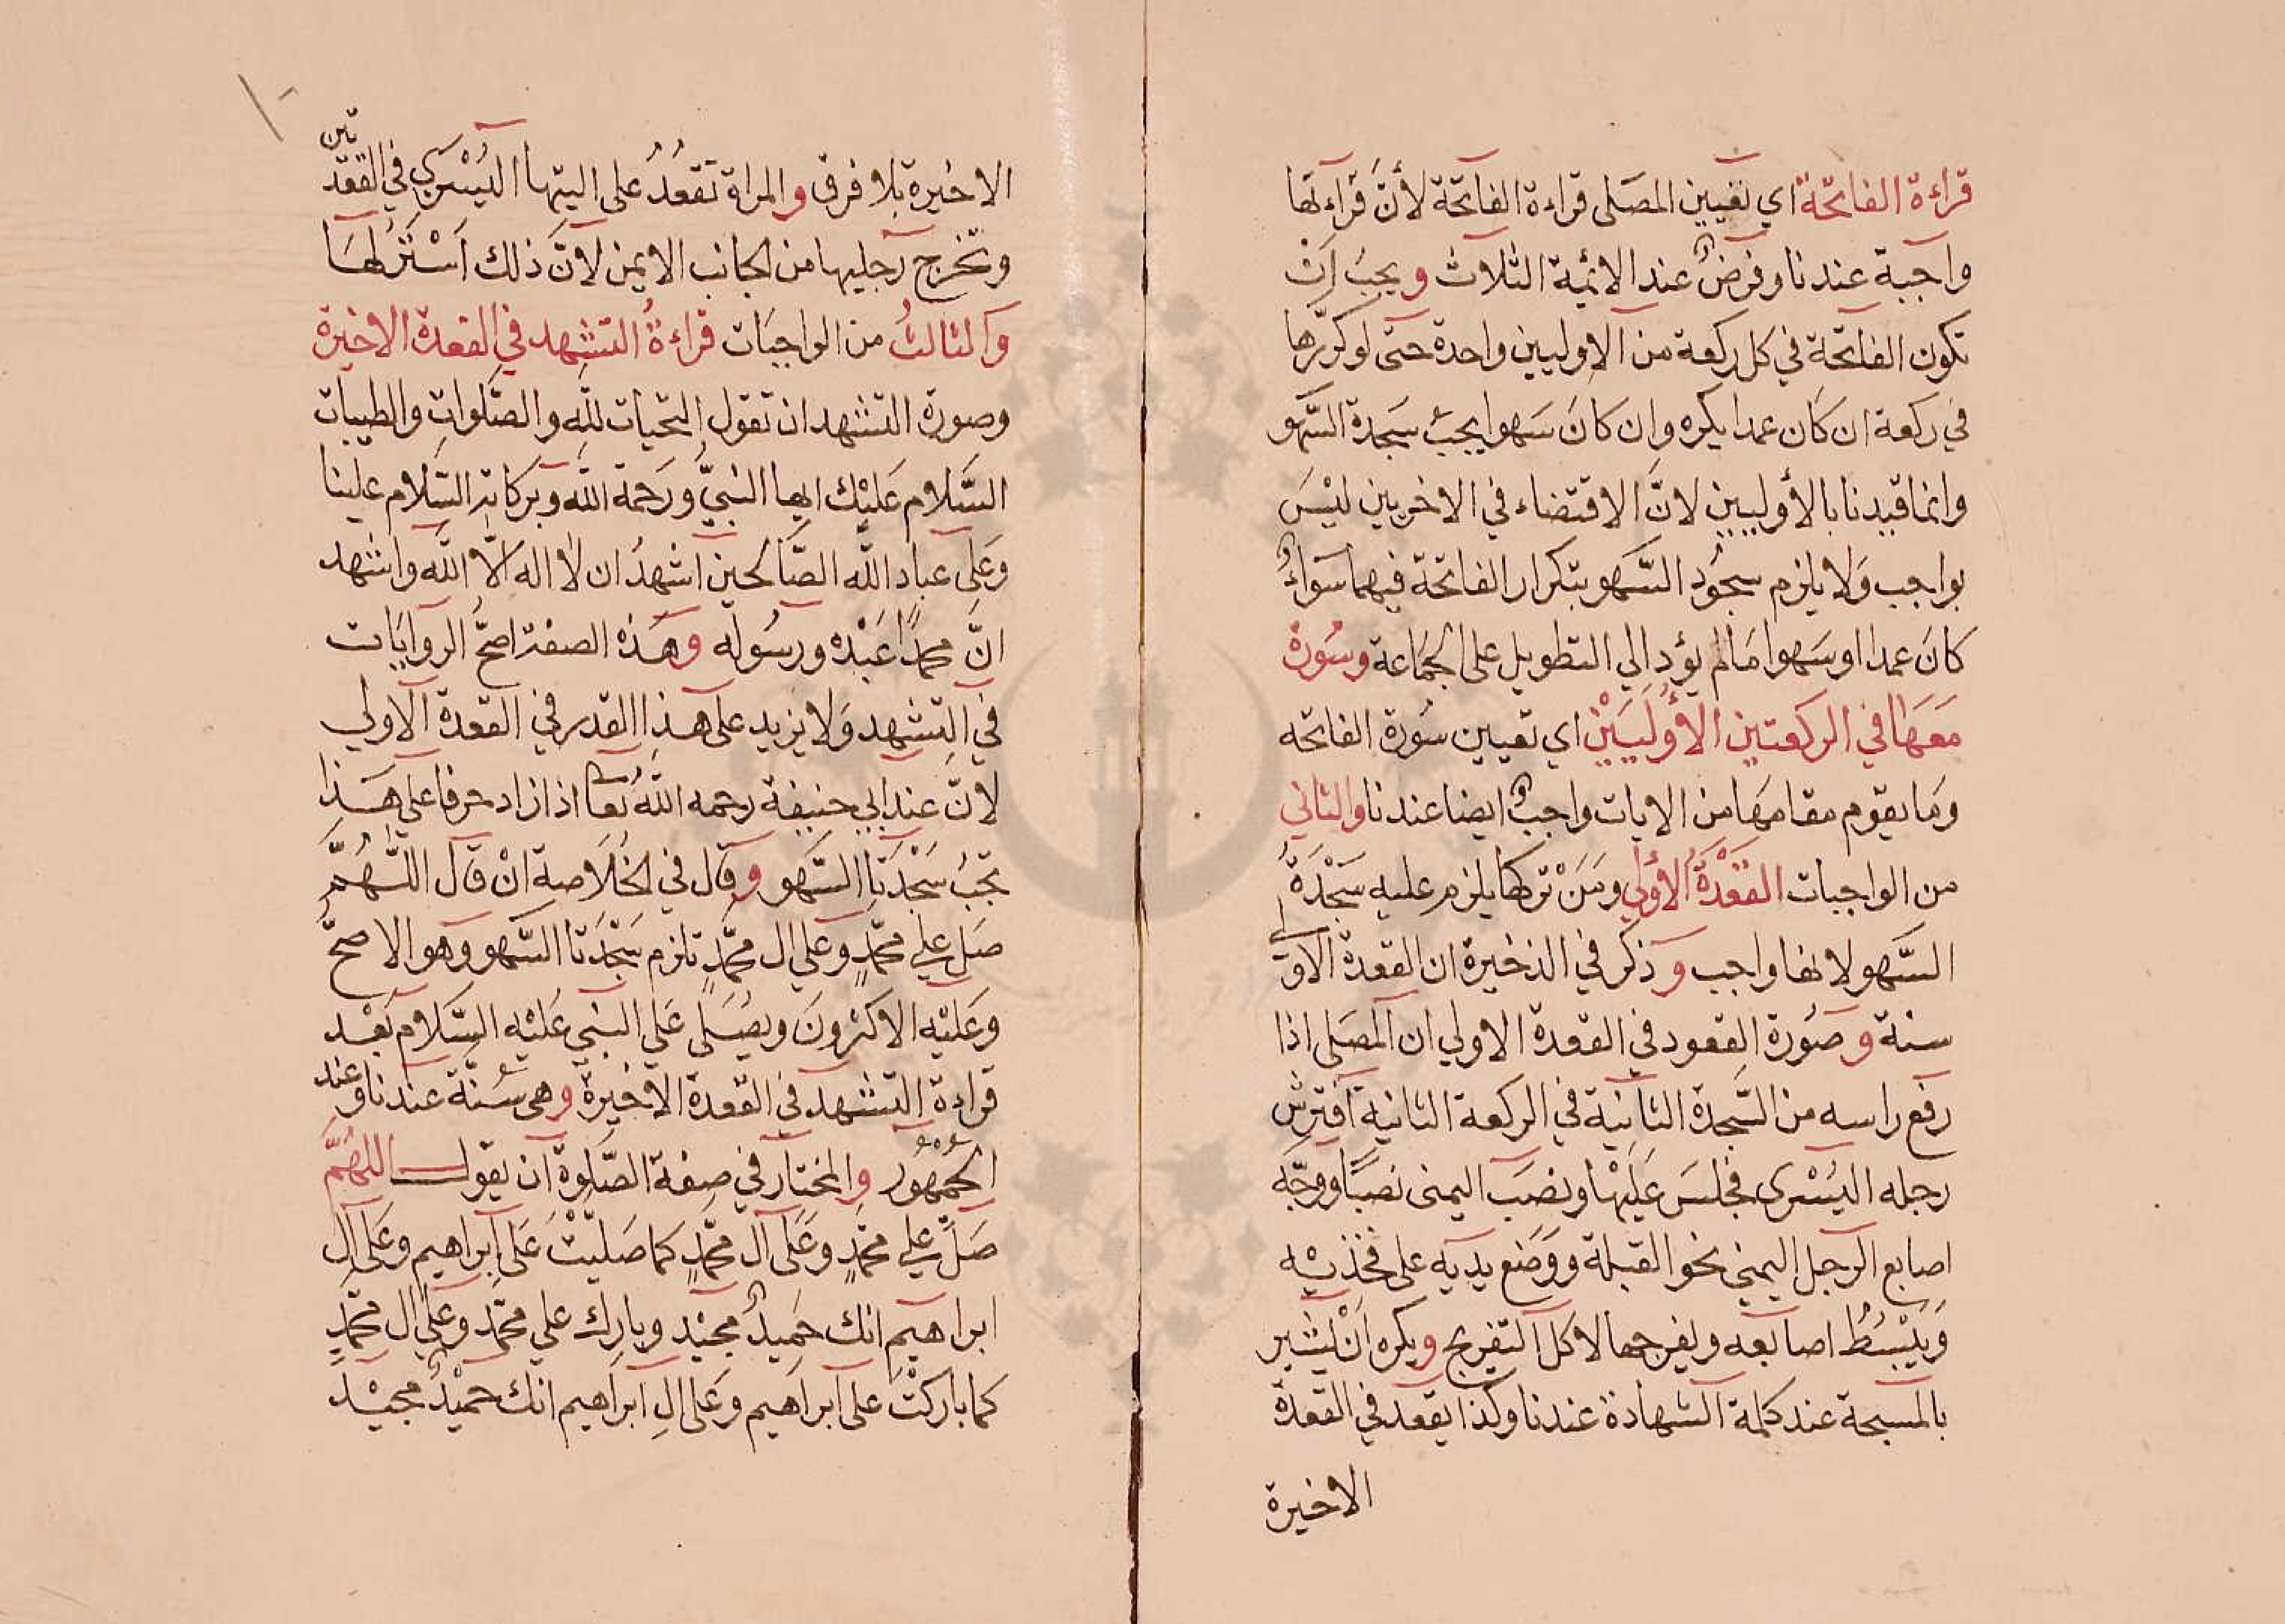 قراءة الفاتحة اي تعيين المصلى قراءة الفاتحة لأنّ قراءتها
واجبة عندنا وفرضٌ عند الائمة الثلاث ويجبُ ان
تكون الفاتحة في كل ركعة من الاوليين واحدة حتى لو كرّرها
في ركعة ان كان عمدا يكره وان كانَ سَهوا يجبُ سَجدة السَّهو
وانما قيدنا بالأوليين لانَّ الاقتضاء في الاخريين ليْسَ
بواجب وَلا يلزم سجُود السَّهو بتكرار الفاتحة فيهما سَوَاءٌ
كانَ عمدا او سَهوا مَا لم يؤد الي التطويل على الجمَاعة وسُورة
مَعَهَا في الركعتين الأُولَيَيْنِ اي تعيين سُورة الفاتحه
وَما يقوم مقامهَا من الايات واجبٌ ايضا عندنا والثاني
من الواجبات القَعْدَةُ الأولي ومَنْ تركها يلزم عليه سَجْدَةُ
السَّهو لانها واجب و ذكر في الذخيرة ان القعدة الاولى
سنة و صُورة القعود في القعدة الاولي ان المصَلى اذا
رفع راسه من السَّجدة الثانية في الركعة الثانية افترش
رجله اليُسْرى فجلسَ عَليْهَا ونصَبَ اليمنى نصبًا ووجّه
اصابع الرجل اليمني نحو القبلة ووَضع يديه على فخذيْه
وَيَبْسُطُ اصابعه ويفرجها لا كل التفريج ويكره انْ يشير
بالمسبحة عند كلمة الشهادة عندنا وكذا يقعد في القعدة
الاخيرة
الاخيرة بلا فرق والمراة تقعُدُ على اليتها اليُسْري في القعدتين
وتخرج رجليها من الجانب الايمن لانّ ذلك اَسْتَرُ لهَا
والثالثُ من الواجبَات قراءةُ التشهد في القعدة الاخيرة
وصورة التشهد ان تقول التحيات للّه والصَّلوات والطيبات
السَّلام عَليْك ايها النبيُّ ورَحمة اللّه وبركاته السَّلام علينا
وَعَلى عباد اللّه الصَّالحين اشهدُ ان لا اله الّا اللّه واشهد
انَّ محمدًا عَبْده ورسُوله وهَذه الصفة اصحُّ الروايَات
في التشهد وَلا يزيد على هذا القدر في القعدة الاولي
لانّ عند ابي حنيفة رحمه اللّهُ تعا اذا زاد حرفا على هَذا
تجبُ سَجْدَتا السَّهو وقال في الخُلَاصة انْ قال اللّهُمَّ
صَل علي محمّدٍ وعَلي ال محمّدٍ تلزم سَجْدَتا السَّهو وهو الاصحُّ
وعَليْه الاكثرونَ ويصَلى عَلي النبي عَليْه السَّلام بَعْد
قراءة التشهد في القعدة الاخيرة وهى سُنّة عندنا وعند
الجُمْهُور والمختار في صِفة الصَّلوة ان يقول اللهُمَّ
صَلِّ علي محمّدٍ وعَلى آل محمّدٍ كما صَليْتَ عَلى ابراهيم وعَلى آلِ
ابراهيم انك حَمِيدٌ مجيْد وبارك علي محمّد وعلي ال محمّدٍ
كما باركتَ على ابراهيم وَعَلى الِ ابراهيم انك حميْدٌ مجيْد